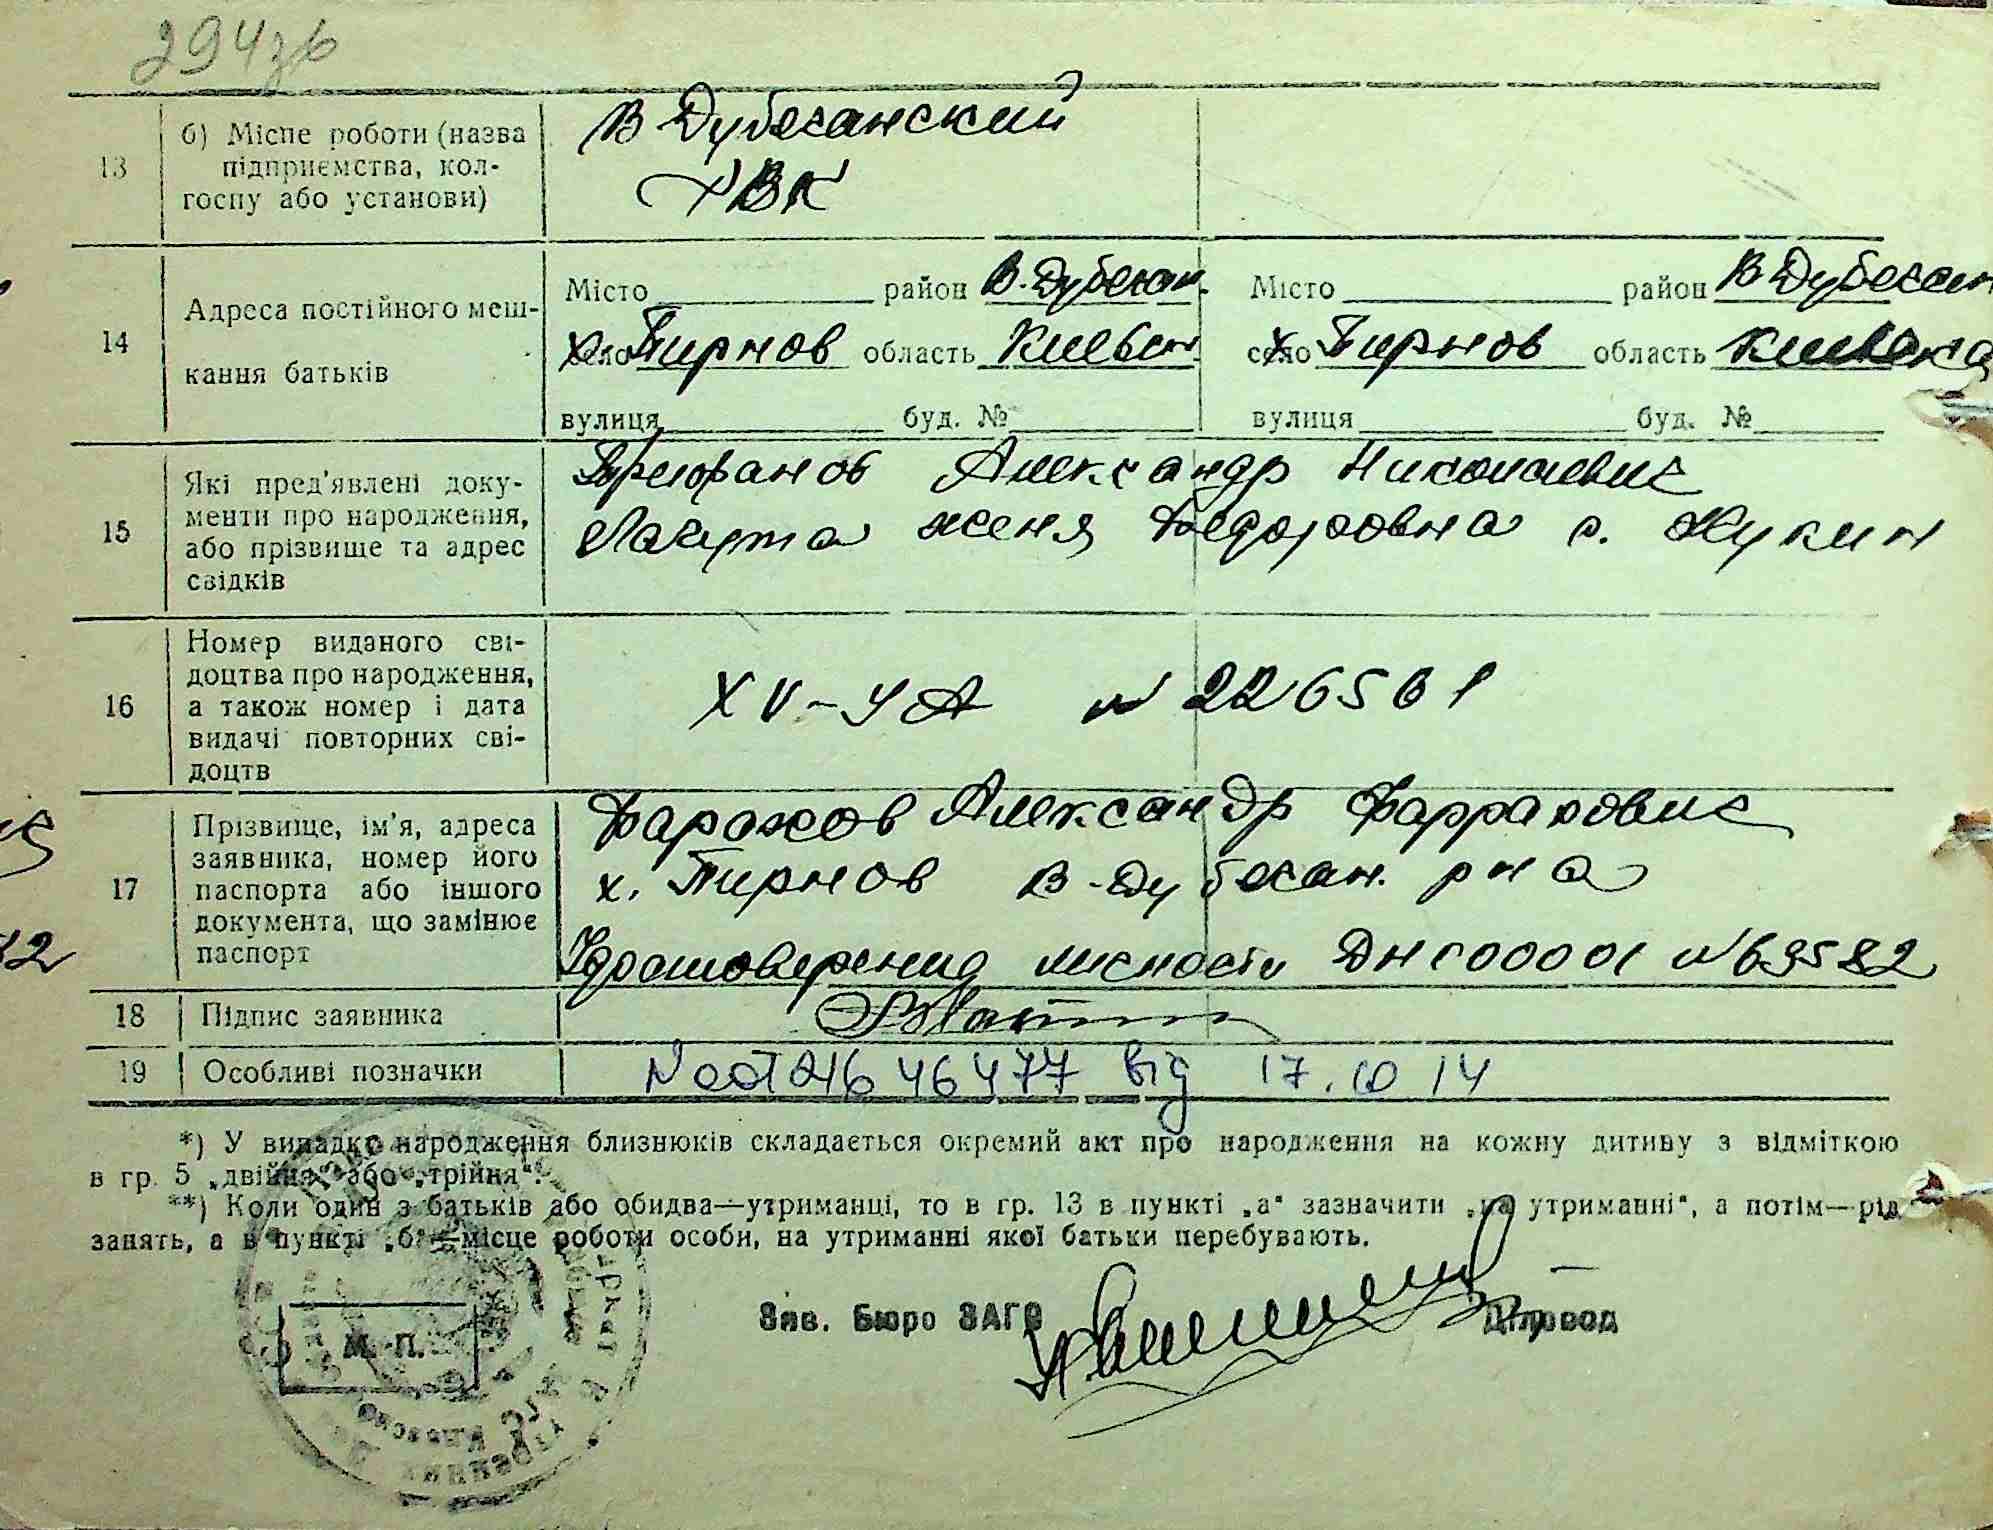 294зв
13 б) Місце роботи (назва підприємства, кол-
госпу або установи)
В Дубечанский
РВК
14 Адреса постійного меш-
кання батьків
Місто район В. Дубечан. Місто район В Дубечан
х. село Пирнов область Киевск х. село Пирнов область Киевска
вулиця буд. № вулиця буд. №
15 Які пред'явлені доку-
менти про народження,
або прізвище та адрес
свідків
Александр Николаевич
Женя Федоровна с. Жукин
16 Номер виданого сві-
доцтва про народження,
а також номер і дата
видачі повторних сві-
доцтв
XV-УА № 226561
17 Прізвище, ім'я, адреса
заявника, номер його
паспорта або іншого
документа, що замінює
паспорт
Фарахов Александр Фаррахович
х. Пирнов В-Дубечан. рна
Удостоверения личности № 69582
18 Підпис заявника
19 Особливі позначки
від 17.10 14
*) У випадку народження близнюків складається окремий акт про народження на кожну дитину з відміткою
в гр. 5 „двійня" або „трійня".
**) Коли один з батьків або обидва—утриманці, то в гр. 13 в пункті „а" зазначити „на утриманні", а потім—рід
занять, а в пункті „б"—місце роботи особи, на утриманні якої батьки перебувають.
Зав. Бюро ЗАГС Діловод
М. П.